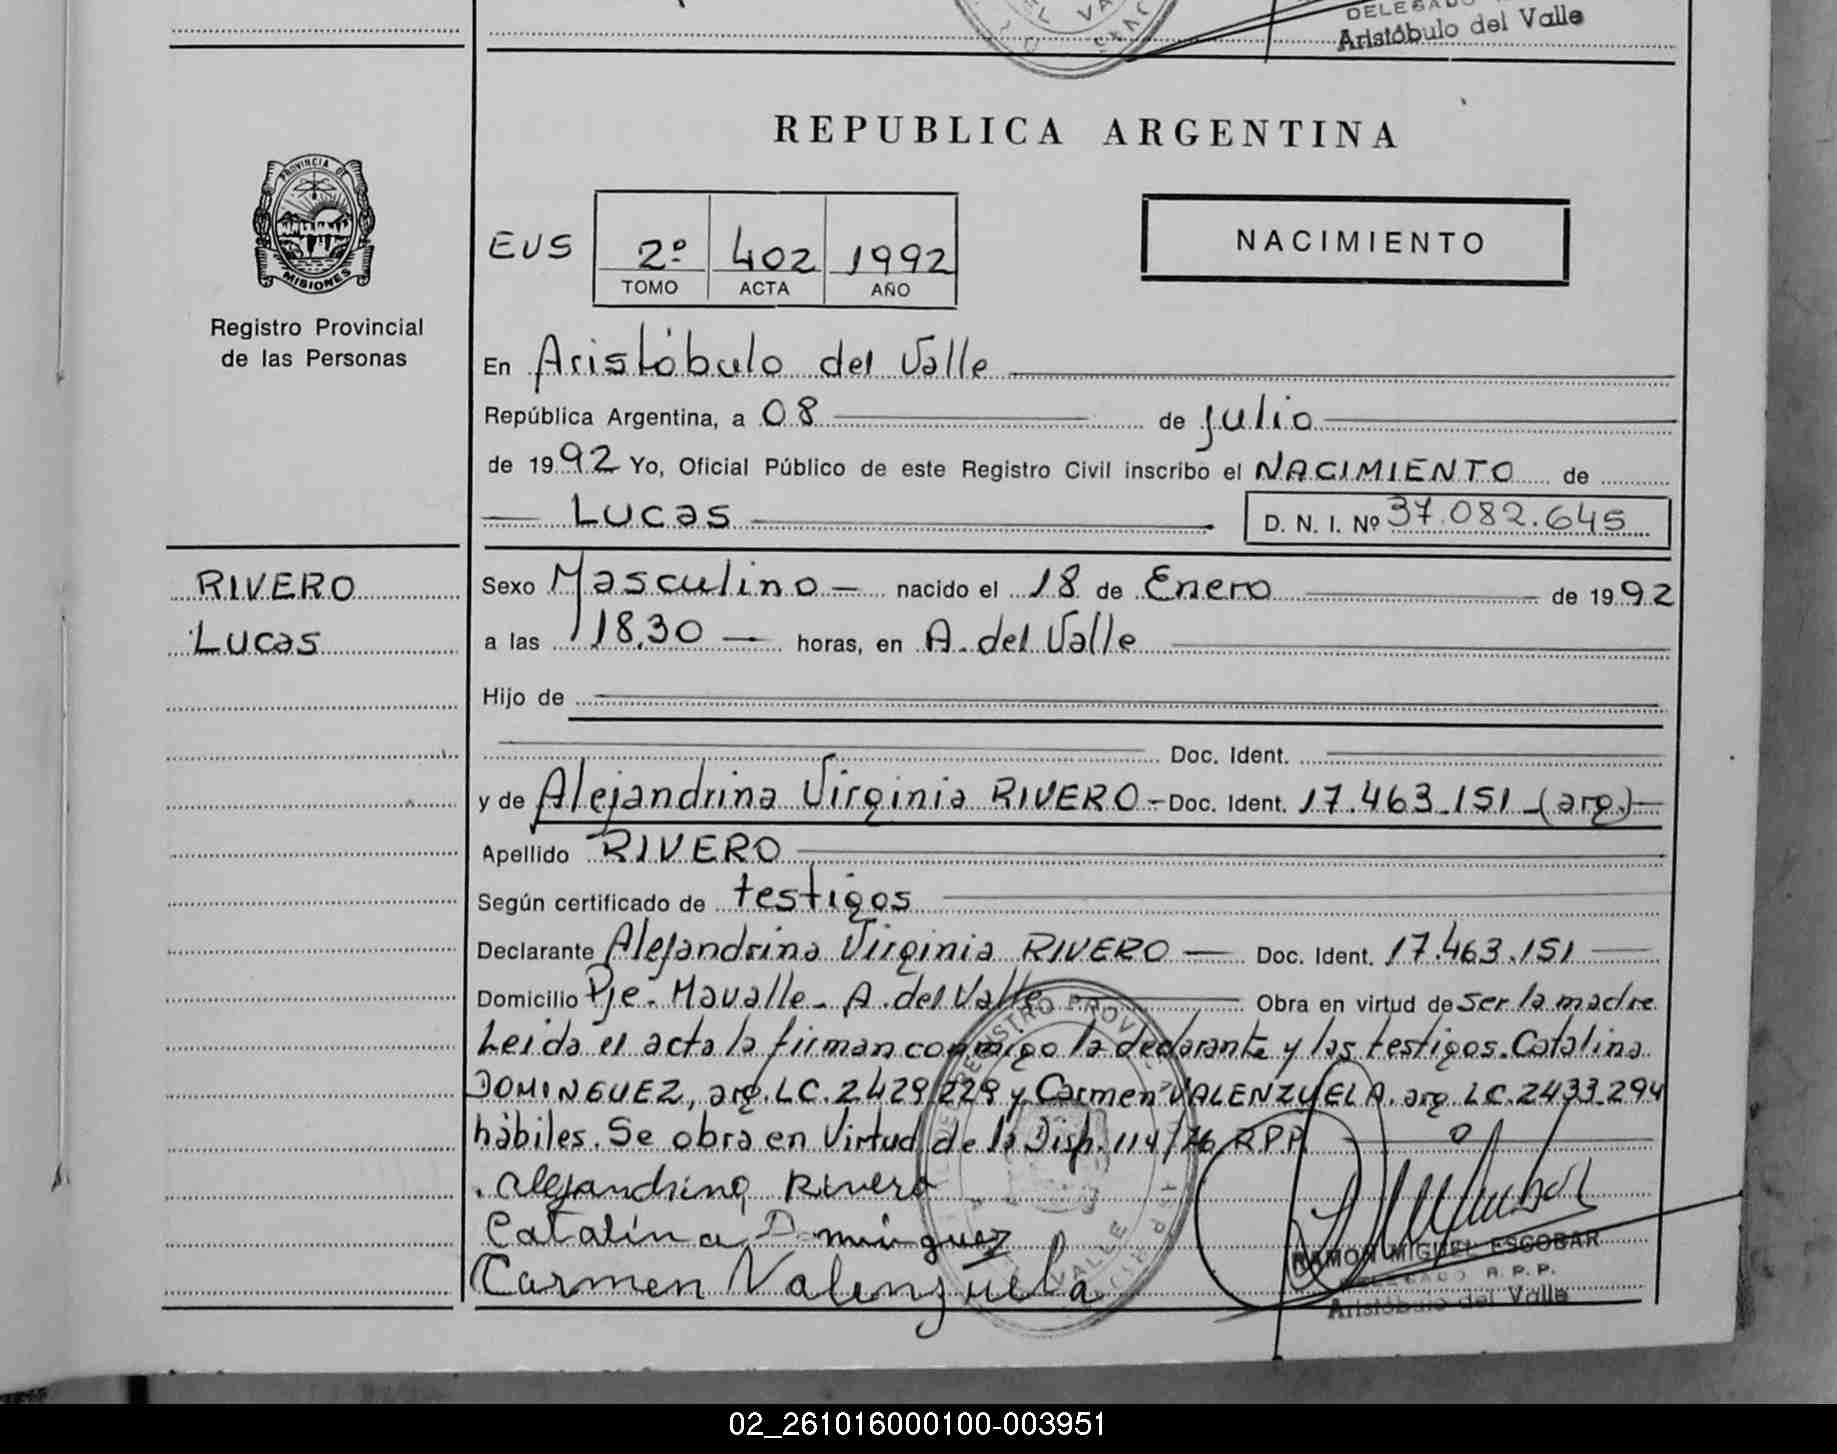 DELEGADO
Aristóbulo del Valle
REPUBLICA ARGENTINA
PROVINCIA DE
MISIONES
Registro Provincial
de las Personas
EUS 2º 402 1992
TOMO ACTA AÑO
NACIMIENTO
En Aristóbulo del Valle
República Argentina, a 08 de julio
de 1992 Yo, Oficial Público de este Registro Civil inscribo el NACIMIENTO de
Lucas D. N. I. Nº 37.082.645
RIVERO
Lucas
Sexo Masculino nacido el 18 de Enero de 1992
a las 18,30 horas, en A. del Valle
Hijo de
Doc. Ident.
y de Alejandrina Virginia RIVERO - Doc. Ident. 17.463.151 (arg.)
Apellido RIVERO
Según certificado de testigos
Declarante Alejandrina Virginia RIVERO Doc. Ident. 17.463.151
Domicilio Pje. Mavalle - A. del Valle Obra en virtud de ser la madre
Leida el acta la firman conmigo la declarante y las testigos. Catalina
DOMINGUEZ, arg. LC. 2429229 y Carmen VALENZUELA. arg. LC. 2433.294
hábiles. Se obra en Virtud de la Disp. 114/76 RPP.
Alejandrina Rivero
Catalina Dominguez
Carmen Valenzuela
REGISTRO PROV
VALLE
RAMON MIGUEL ESCOBAR
DELEGADO R. P. P.
Aristóbulo del Valle
02_261016000100-003951